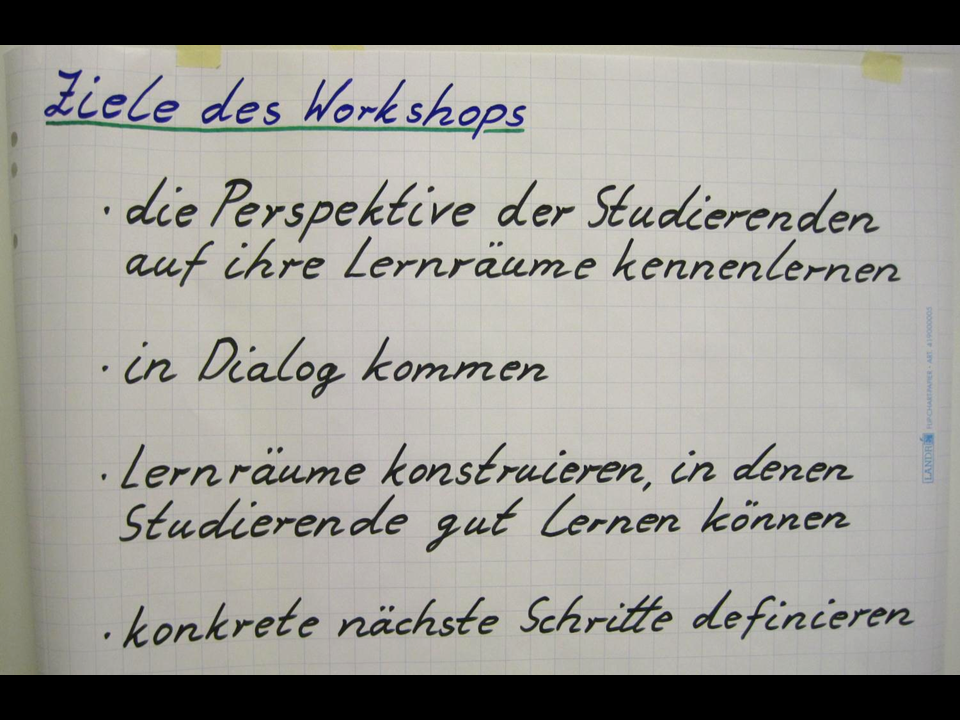 Ziele des Workshops
· die Perspektive der Studierenden
auf ihre Lernräume kennenlernen
· in Dialog kommen
· Lernräume konstruieren, in denen
Studierende gut lernen können
· konkrete nächste Schritte definieren
LANDRÉ